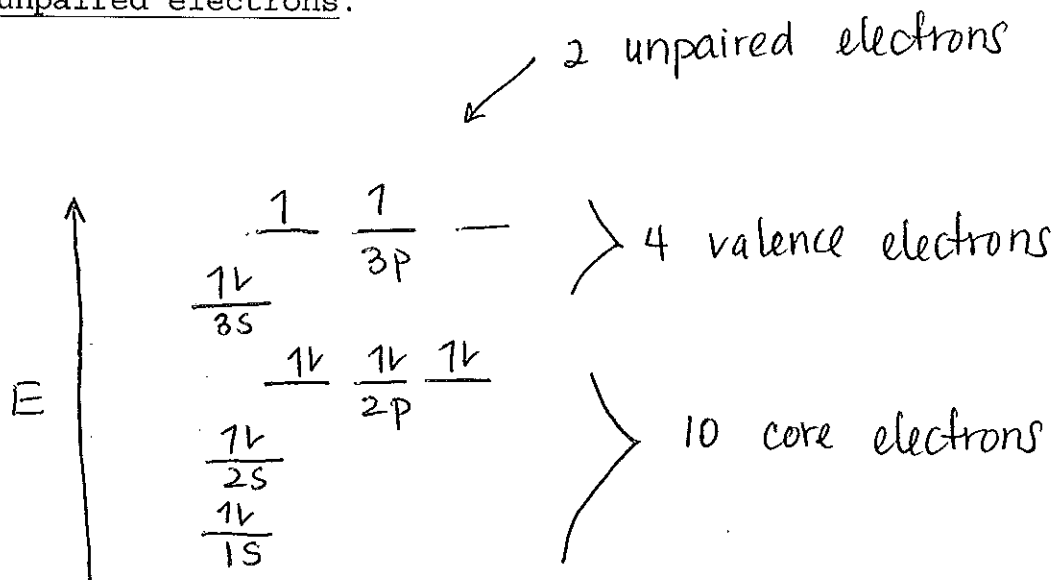 unpaired electrons.
2 unpaired electrons
1 1
3p
4 valence electrons
1v
3s
1v 1v 1v
2p
E
1v
2s
10 core electrons
1v
1s